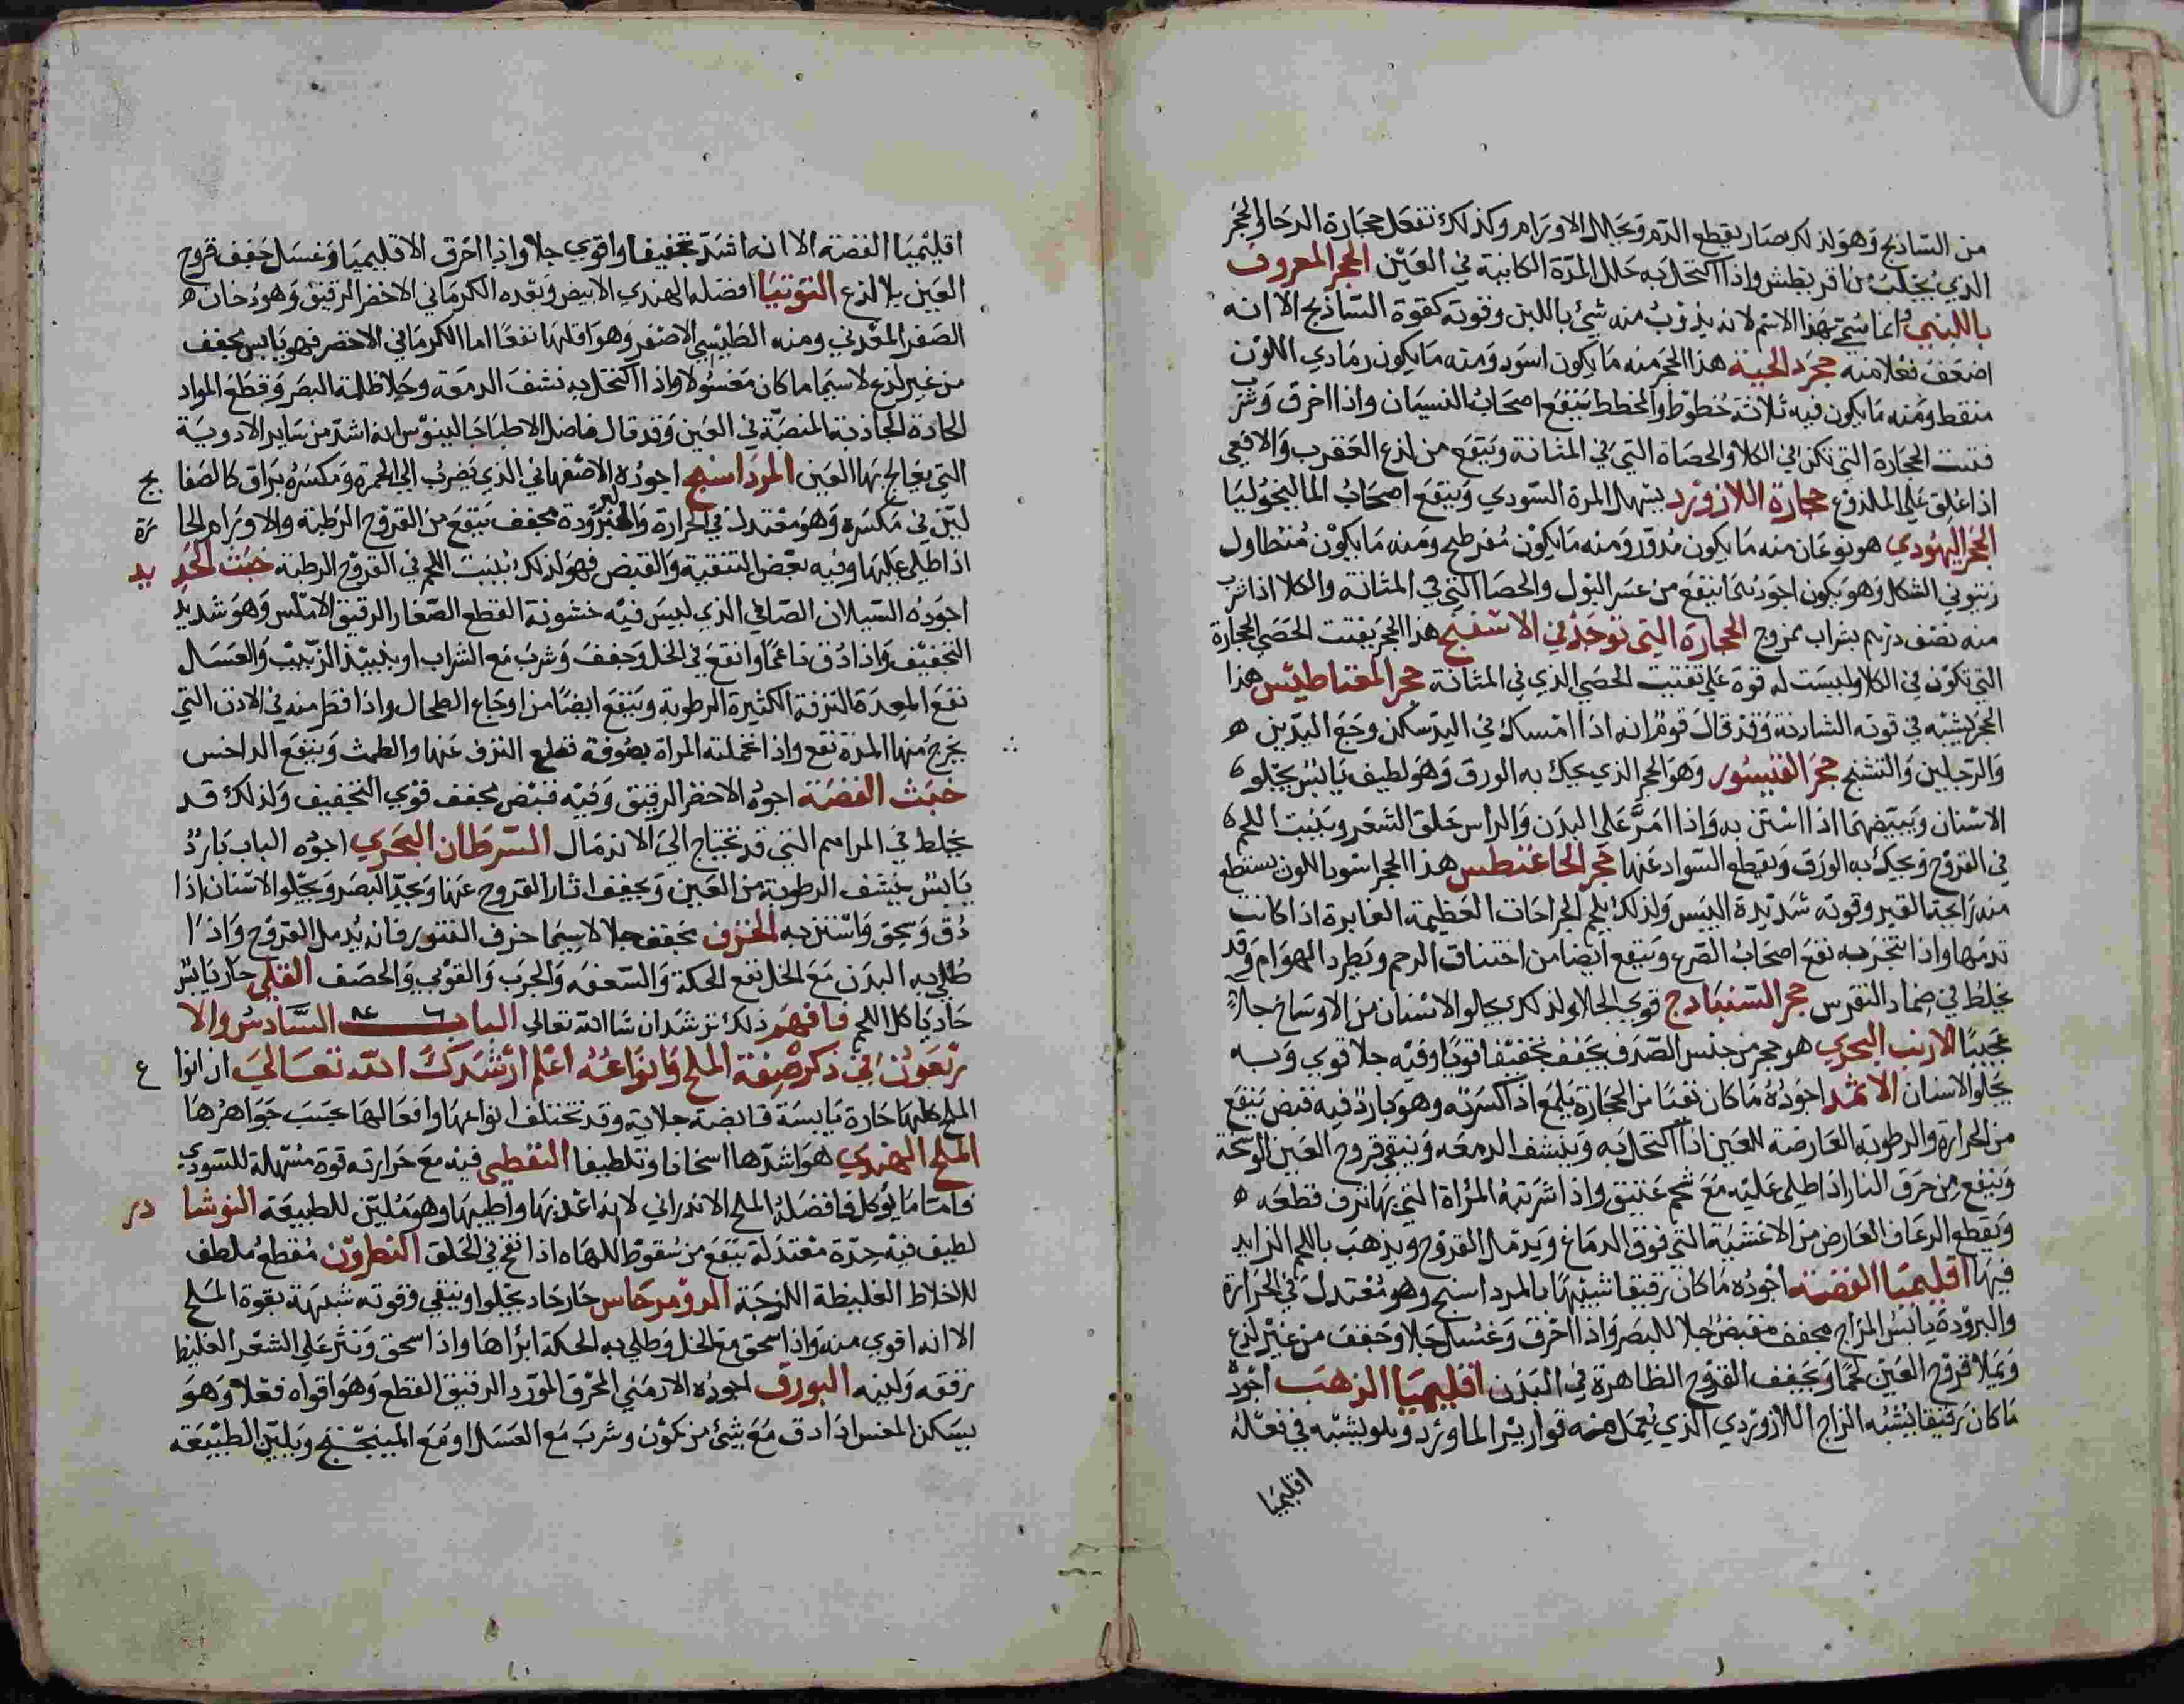 من الساذج وهو لذلك صار يقطع الدم ويحلل الاورام وكذلك تفعل حجارة الرحا والحجر
الذي يجلب من اقريطش واذا اكتحل به حلل المدة الكاينة في العين الحجر المعروف
باللبني انما سمي بهذا الاسم لانه يذوب منه شيء باللبن وقوته كقوة الساذج الا انه
اضعف فعلا منه حجر الحية هذا الحجر منه ما يكون اسود ومنه ما يكون رمادي اللون
منقط ومنه ما يكون فيه ثلاثة خطوط والمخطط ينفع اصحاب النسيان واذا احرق وشرب
فتت الحجارة التي تكن في الكلا والحصاة التي في المثانة وينفع من لذع العقرب والافعي
اذا علق علي الملذوع حجارة اللازورد يسهل المرة السودي وينفع اصحاب الماليخوليا
الحجر اليهودي هو نوعان منه ما يكون مدور ومنه ما يكون مفرطح ومنه ما يكون متطاول
زيتوني الشكل وهو يكون اجود نحا ينفع من عسر البول والحصا التي في المثانة والكلا اذا شرب
منه نصف درهم بشراب ممزوج الحجارة التي توجد في الاسفنج هذا الحجر يفتت الحصي الحجارة
التي تكون في الكلا وليست له قوة علي تفتيت الحصي الذي في المثانة حجر المغناطيس هذا
الحجر يشبه في قوته الشاذنة وقد قال قوم انه اذا امسك في اليد سكن وجع اليدين ه
والرجلين والتشنج حجر القيسور وهو الحجر الذي يحك به الورق وهو لطيف يابس يجلو
الاسنان ويبيضها اذا استن به واذا امر علي البدن والراس حلق الشعر وينبت اللحم
في القروح ويحك به الورق ويقطع السواد عنها حجر الحاغنطس هذا الحجر اسود اللون يسطع
منه رايحة القير وقوته شديدة اليبس ولذلك يلحم الجراحات العظيمة الغايرة اذا كانت
بدمها واذا تبخر به نفع اصحاب الصرع وينفع ايضا من اختناق الرحم ويطرد الهوام وقد
يخلط في ضماد النقرس حجر السنبادج قوي الجلا ولذلك يجلو الاسنان من الاوساخ جلاً
عجيبا الارنب البحري هو حجر من جنس الصدف يجفف تجفيفا قويا وفيه جلا قوي وبه
يجلو الاسنان الاثمد اجوده ما كان نقيا من الحجارة يلمع اذا كسرته وهو بارد فيه قبض ينفع
من الحرارة والرطوبة العارضة للعين اذا اكتحل به وينشف الدمعه وينقي قروح العين الوسخة
وينفع من حرق النار اذا طلي عليه مع شحم عتيق واذا شربته المراة التي بها نزف قطعه ه
ويقطع الرعاف العارض من الاغشية التي فوق الدماغ ويدمل القروح ويذهب باللحم الزايد
فيها اقليميا الفضه اجوده ما كان رقيقا شبيها بالمرداسنج وهو معتدل في الحرارة
والبرودة يابس المزاج مجفف مقبض جلا للبصر واذا احرق وغسل جلا وجفف من غير لذع
ويملا قروح العين لحما ويجفف القروح الظاهرة في البدن اقليميا الذهب اجود
ما كان رقيقا يشبه الزاج اللازوردي الذي يعمل منه قوارير الماورد وبلو يشبه في فعله
اقليميا
اقليميا الفضه الا انه اشد تجفيفا واقوي جلا واذا احرق الاقليميا وغسل جفف قروح
العين بلا لذع التوتيا افضله الهندي الابيض وبعده الكرماني الاخضر الرقيق وهو دخان ه
الصفر المعدني ومنه الطبسي الاصفر وهو اقلها نفعا اما الكرماني الاخضر فهو يابس يجفف
من غير لذع لاسيما ما كان مغسولا واذا اكتحل به نشف الدمعة وجلا ظلمة البصر وقطع المواد
الحادة الحاذبة المنصبة في العين وقد قال فاضل الاطبا جالينوس انه اشد من ساير الادوية
التي يعالج بها العين المرداسنج اجوده الاصفهاني الذي يضرب الي الحمرة ومكسره براق كالصفايح
لين في مكسره وهو معتدل في الحرارة والبرودة مجفف ينفع من القروح الرطبة والاورام الحارة
اذا طلي عليها وفيه بعض التنقية والقبض فهو لذلك ينبت اللحم في القروح الرطبة خبث الحديد
اجوده السيلان الصافي الذي ليس فيه خشونة القطع الصغار الرقيق الاملس وهو شديد
التجفيف واذا دق ناعما وانقع في الخل وجفف وشرب مع الشراب او بنبيذ الزبيب والعسل
نفع المعدة النزفة الكثيرة الرطوبة وينفع ايضا من اوجاع الطحال واذا قطر منه في الاذن التي
يخرج منها المدة نفع واذا تحملته المراة بصوفة قطع النزف عنها والطمث وينفع الداحس
خبث الفضة اجوده الاخضر الرقيق وفيه قبض مجفف قوي التجفيف ولذلك قد
يخلط في المراهم التي قد تحتاج الي الاندمال السرطان البحري اجوده الباب بارد
يابس ينشف الرطوبة من العين ويجفف اثار القروح عنها ويحد البصر ويجلو الاسنان اذا
دق وسحق واستن به الخزف يجفف جلا لاسيما خزف التنور فانه يدمل القروح واذا
طلي به البدن مع الخل نفع الحكة والسعفه والجرب والقوبي والحصف القلي حار يابس
حاد ياكل اللحم فافهم ذلك ترشد ان شا الله تعالي الباب السادس والا
ربعون في ذكر صفة الملح وانواعه اعلم ارشدك الله تعالي ان انواع
الملح كلها حارة يابسة قابضة جلاية وقد تختلف انواعها وافعالها بحسب جواهرها
الملح الهندي هو اشدها اسخانا وتلطيفا النفطي فيه مع حرارته قوة مسهلة للسودي
فاما ما يوكل فافضله الملح الاندراني لانه اعذبها واطيبها وهو ملين للطبيعة النوشادر
لطيف فيه حدة معتدلة ينفع من سقوط اللهاه اذا نفخ في الحلق النطرون مقطع ملطف
للاخلاط الغليظة اللزجة الدومرحاس حار حاد يجلوا وينقي وقوته شبيهة بقوة الملح
الا انه اقوي منه واذا سحق مع الخل وطلي به الحكة ابراها واذا سحق ونثر علي الشعر الغليظ
رققه ولينه البورق اجوده الارمني المحرق المورد الرقيق القطع وهو اقواه فعلا وهو
يسكن المغس اذا دق مع شيء من كمون وشرب مع العسل او مع الميبختج ويلين الطبيعه